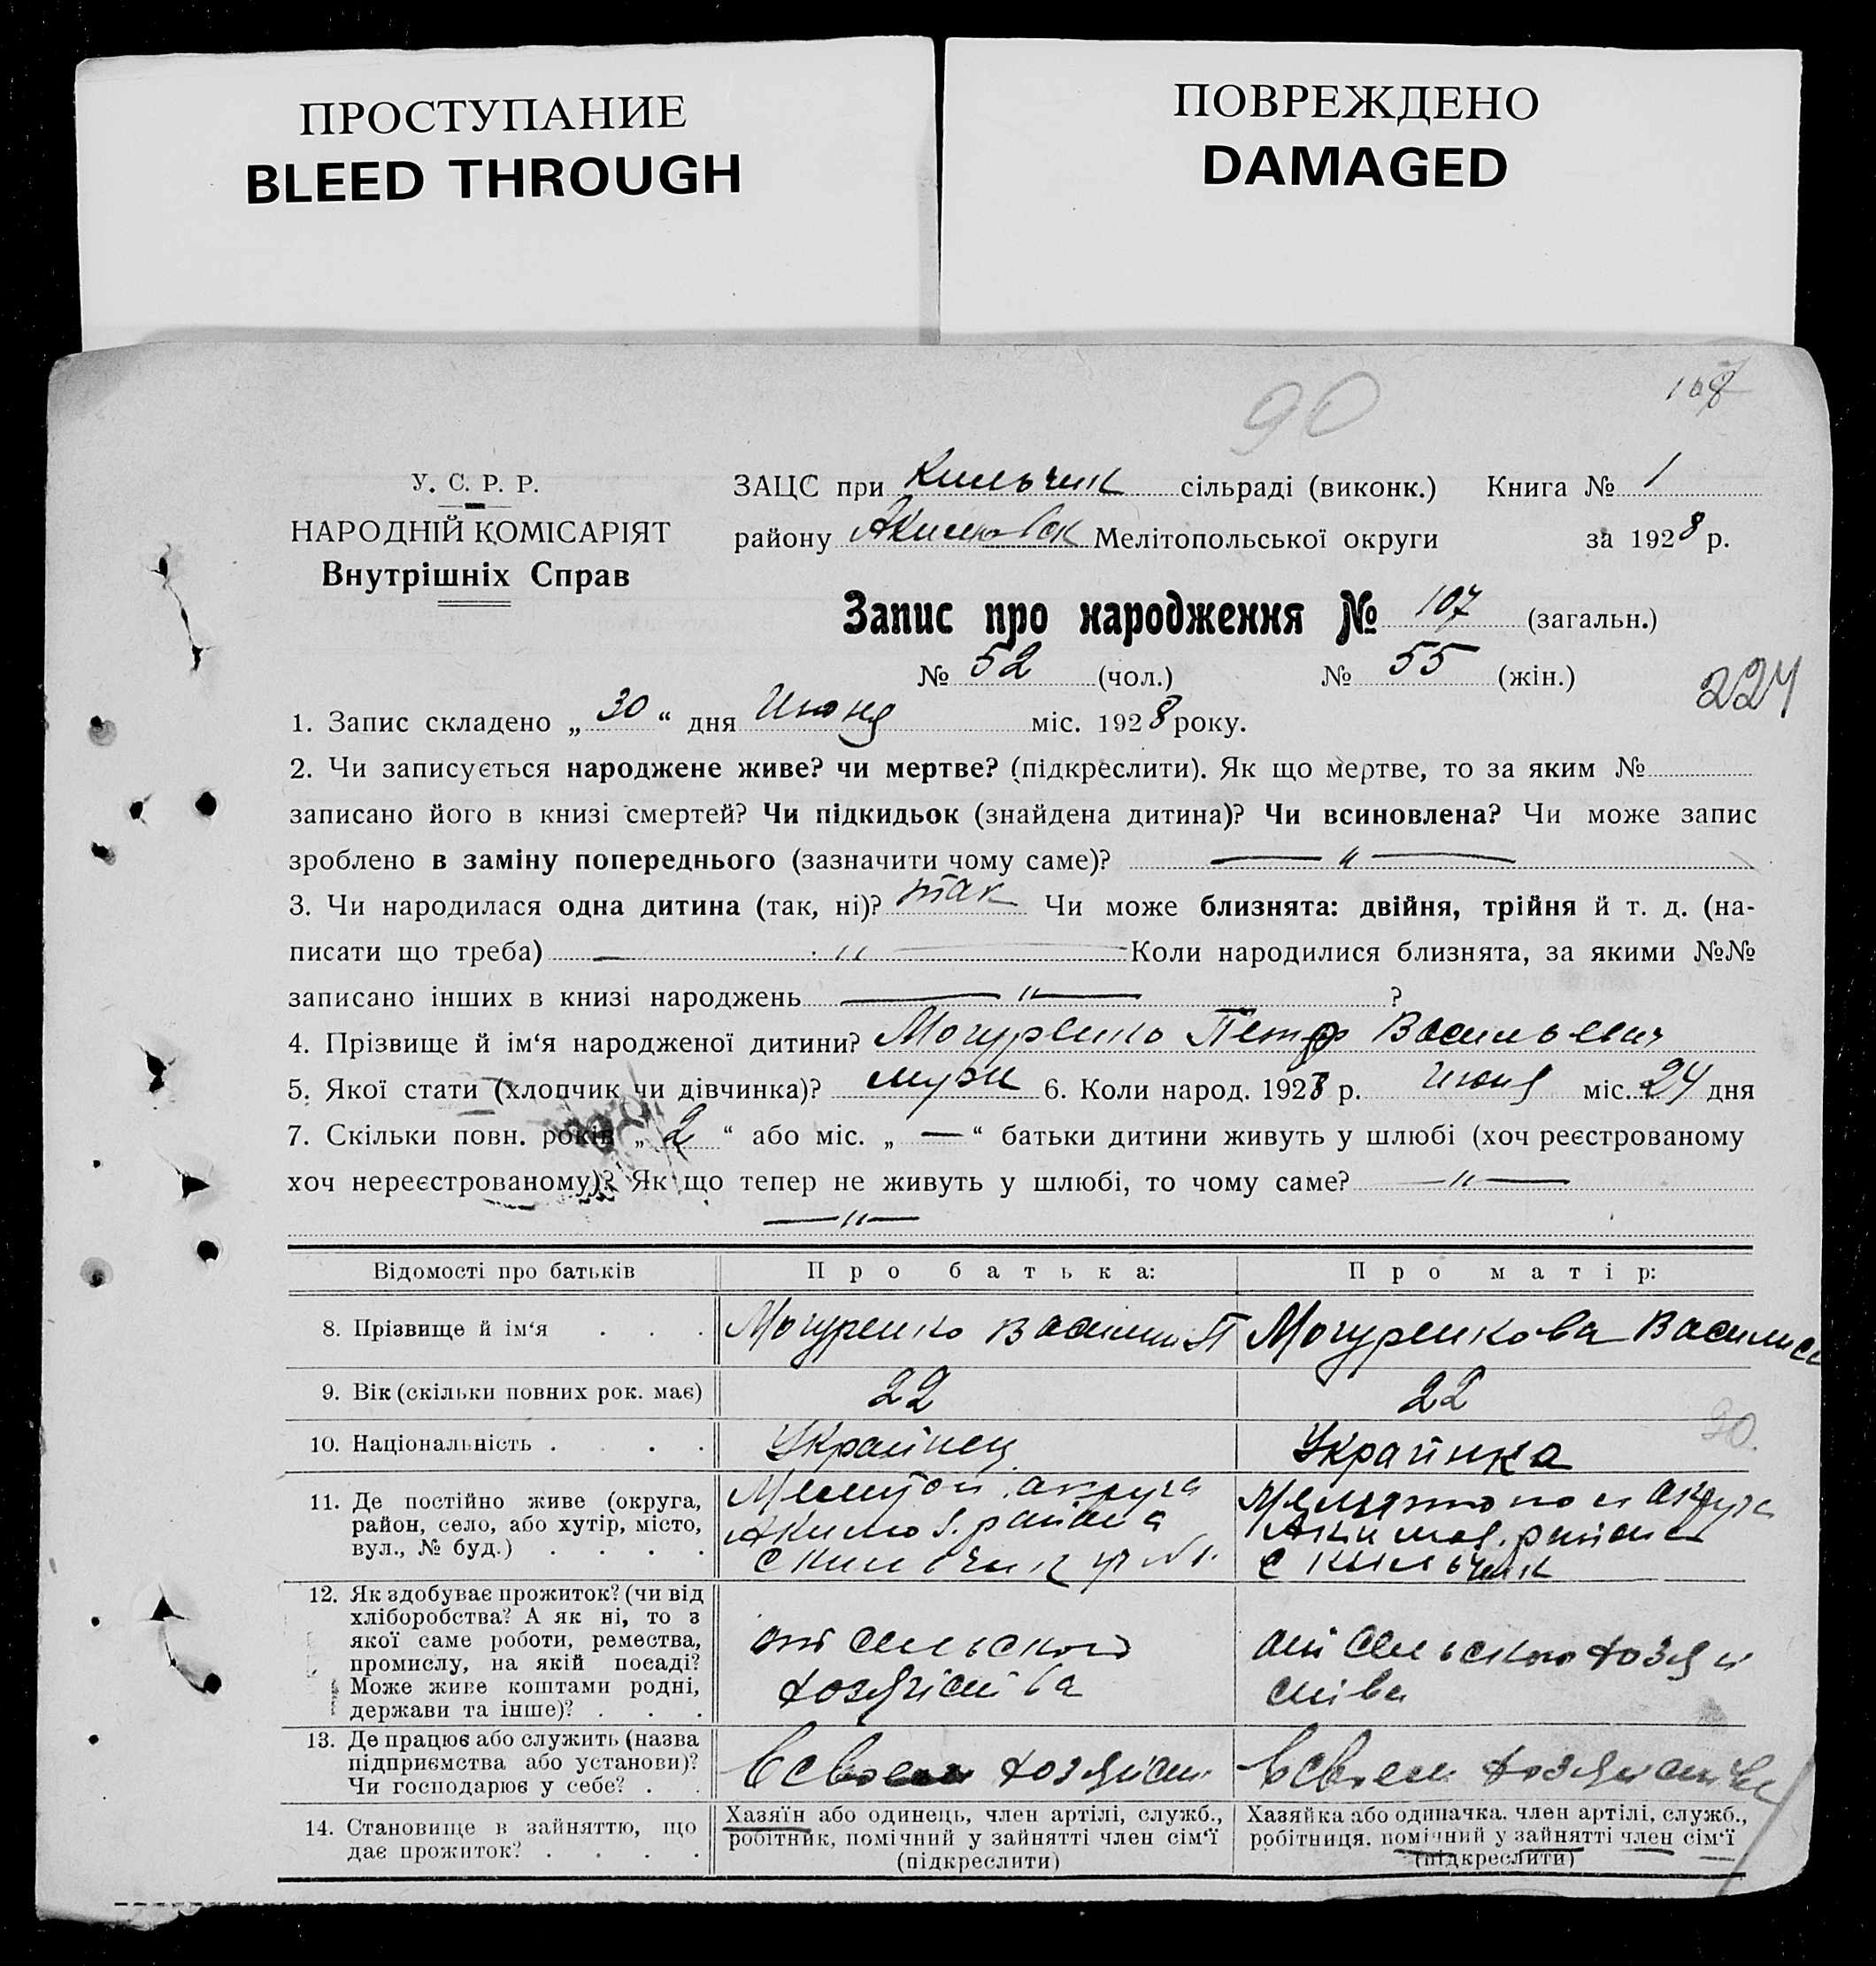 ПРОСТУПАНИЕ
BLEED THROUGH
ПОВРЕЖДЕНО
DAMAGED
90
У. С. Р. Р.
НАРОДНІЙ КОМІСАРІЯТ
Внутрішніх Справ
ЗАЦС при Кильчик сільраді (виконк.) Книга № 1
району Акимовск Мелітопольської округи за 1928 р.
Запис про народження № 107 (загальн.)
№ 52 (чол.) № 55 (жін.)
224
1. Запис складено „ 30 “ дня Июня міс. 1928 року.
2. Чи записується народжене живе? чи мертве? (підкреслити). Як що мертве, то за яким №
записано його в книзі смертей? Чи підкидьок (знайдена дитина)? Чи всиновлена? Чи може запис
зроблено в заміну попереднього (зазначити чому саме)? — „ —
3. Чи народилася одна дитина (так, ні)? так Чи може близнята: двійня, трійня й т. д. (на-
писати що треба) — „ — Коли народилися близнята, за якими №№
записано інших в книзі народжень — „ — ?
4. Прізвище й ім‘я народженої дитини? Могуренко Петр Васильевич
5. Якої стати (хлопчик чи дівчинка)? муж 6. Коли народ. 1928 р. июня міс. 24 дня
7. Скільки повн. років „ 2 “ або міс. „ — “ батьки дитини живуть у шлюбі (хоч реєстрованому
хоч нереєстрованому)? Як що тепер не живуть у шлюбі, то чому саме? — „ —
— „ —
Відомості про батьків Про батька: Про матір:
8. Прізвище й ім‘я . . . Могуренко Василий П Могуренкова Василиса
9. Вік (скільки повних рок. має) 22 22
10. Національність . . . . Украинец Украинка
30.
11. Де постійно живе (округа,
район, село, або хутір, місто,
вул., № буд.) . . . .
Мелитоп. округа
Аким. района
с Кильчик
Мелитопол округа
Аким. района
с Кильчик
12. Як здобуває прожиток? (чи від
хліборобства? А як ні, то з
якої саме роботи, ремества,
промислу, на якій посаді?
Може живе коштами родні,
держави та інше)? . . .
от сельского
хозяйства
от сельского хозяй
ства
13. Де працює або служить (назва
підприємства або установи)?
Чи господарює у себе? . .
В своем хозяйст.
В своем хозяйстве
14. Становище в зайняттю, що
дає прожиток? . . . .
Хазяїн або одинець, член артілі, служб.,
робітник, помічний у зайнятті член сім‘ї
(підкреслити)
Хазяйка або одиначка, член артілі, служб.,
робітниця, помічний у зайнятті член сім‘ї
(підкреслити)